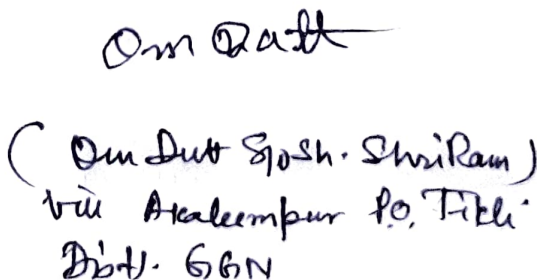 Om Datt
(Om Dutt S/o Sh. Shri Ram)
Vill Akalimpur P.O. Tikli
Distt. GGN